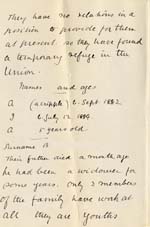 They have no relations in a
position to provide for them
at present. so they have found
a temporary refuge in the
Union.
Names and ages
A (cripple) 6. Sept. 1882.
J 6 July 1884
A 5 years old
Surname B
Their father died a month ago
he had been a widower for
some years. Only 2 members
of the family have work at
all they are youths